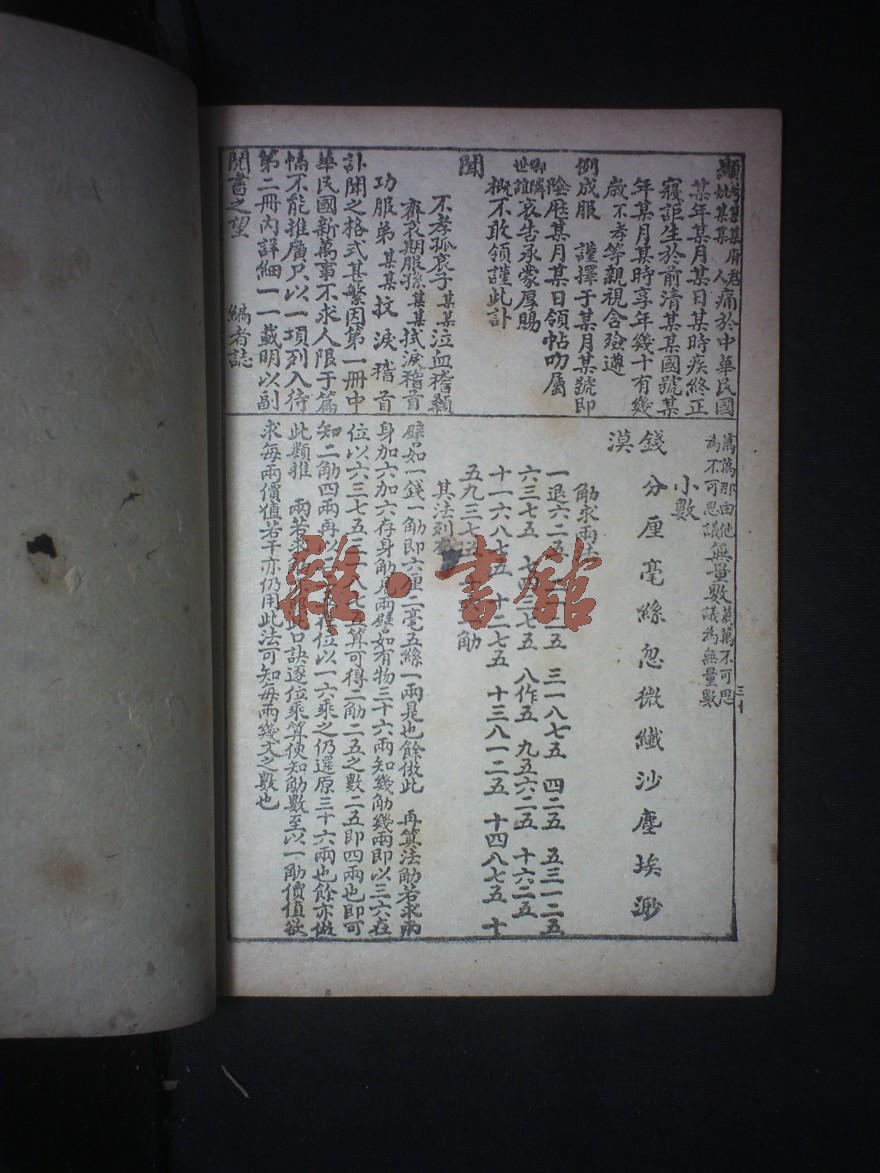 顯考某某府君
妣某某人痛於中華民國
某年某月某日某時疾終正
寢距生於前清某某國號某
年某月某時享年幾十有幾
歲不孝等親視含殮遵
例成服 謹擇于某月某號即
陰歷某月某日領帖叨屬
鄉隣
世誼哀告承蒙厚賜
概不敢領謹此訃
聞
不孝孤哀子某某泣血稽顙
齊衰期服孫某某拭淚稽首
功服弟某某抆淚稽首
訃聞之格式甚繁因第一冊中
華民國新萬事不求人限于篇
幅不能推廣只以一項列入待
第二冊內詳細一一載明以副
閱書之望 編者誌
萬萬那由他
為不可思議 無量數 萬萬不可思
議為無量數
三十
小數
錢 分 厘 毫 絲 忽 微 纖 沙 塵 埃 渺
漠
觔求兩法
一退六二五 二一二五 三一八七五 四二五 五三一二五
六三七五 七四三七五 八作五 九五六二五 十六二五
十一六八七五 十二七五 十三八一二五 十四八七五 十
五九三七五 觔
其法列
譬如一錢一觔即六厘二毫五絲一兩是也餘倣此 再算法觔若求兩
身加六加六存身觔見兩譬如有物三十六兩知幾觔幾兩即以三六在
位以六三七五三一八七五算可得二觔二五之數二五即四兩也即可
知二觔四兩再以二 位以一六乘之仍還原三十六兩也餘亦倣
此類推 兩若求 口訣逐位乘算便知觔數至以一觔價值欲
求每兩價值若干亦仍用此法可知每兩幾文之數也
雜·書館